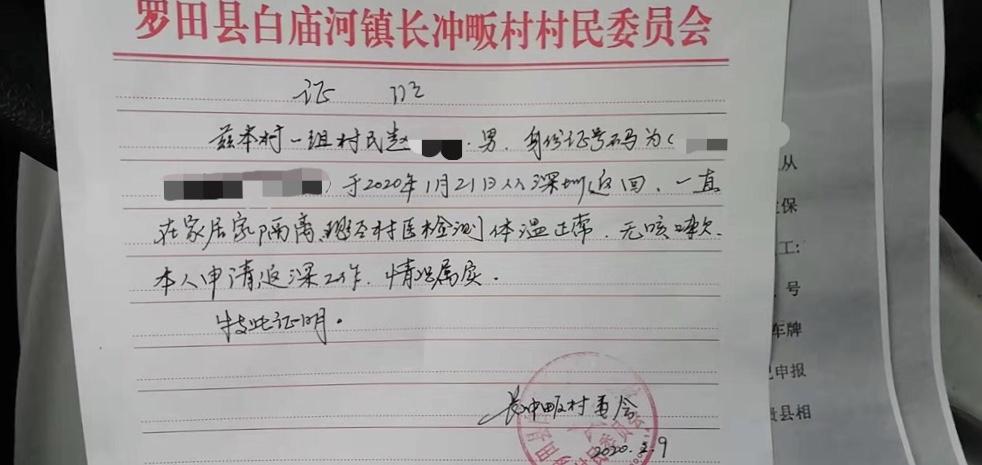 罗田县白庙河镇长冲畈村村民委员会
证 明
兹本村一组村民赵 男,身份证号码为(
)于2020年1月21日从深圳返回,一直
在家居家隔离,现经村医检测体温正常,无咳嗽,
本人申请返深工作,情况属实。
特此证明。
长冲畈村委会
2020.2.9
从
保
工:
号
车牌
申报
县相